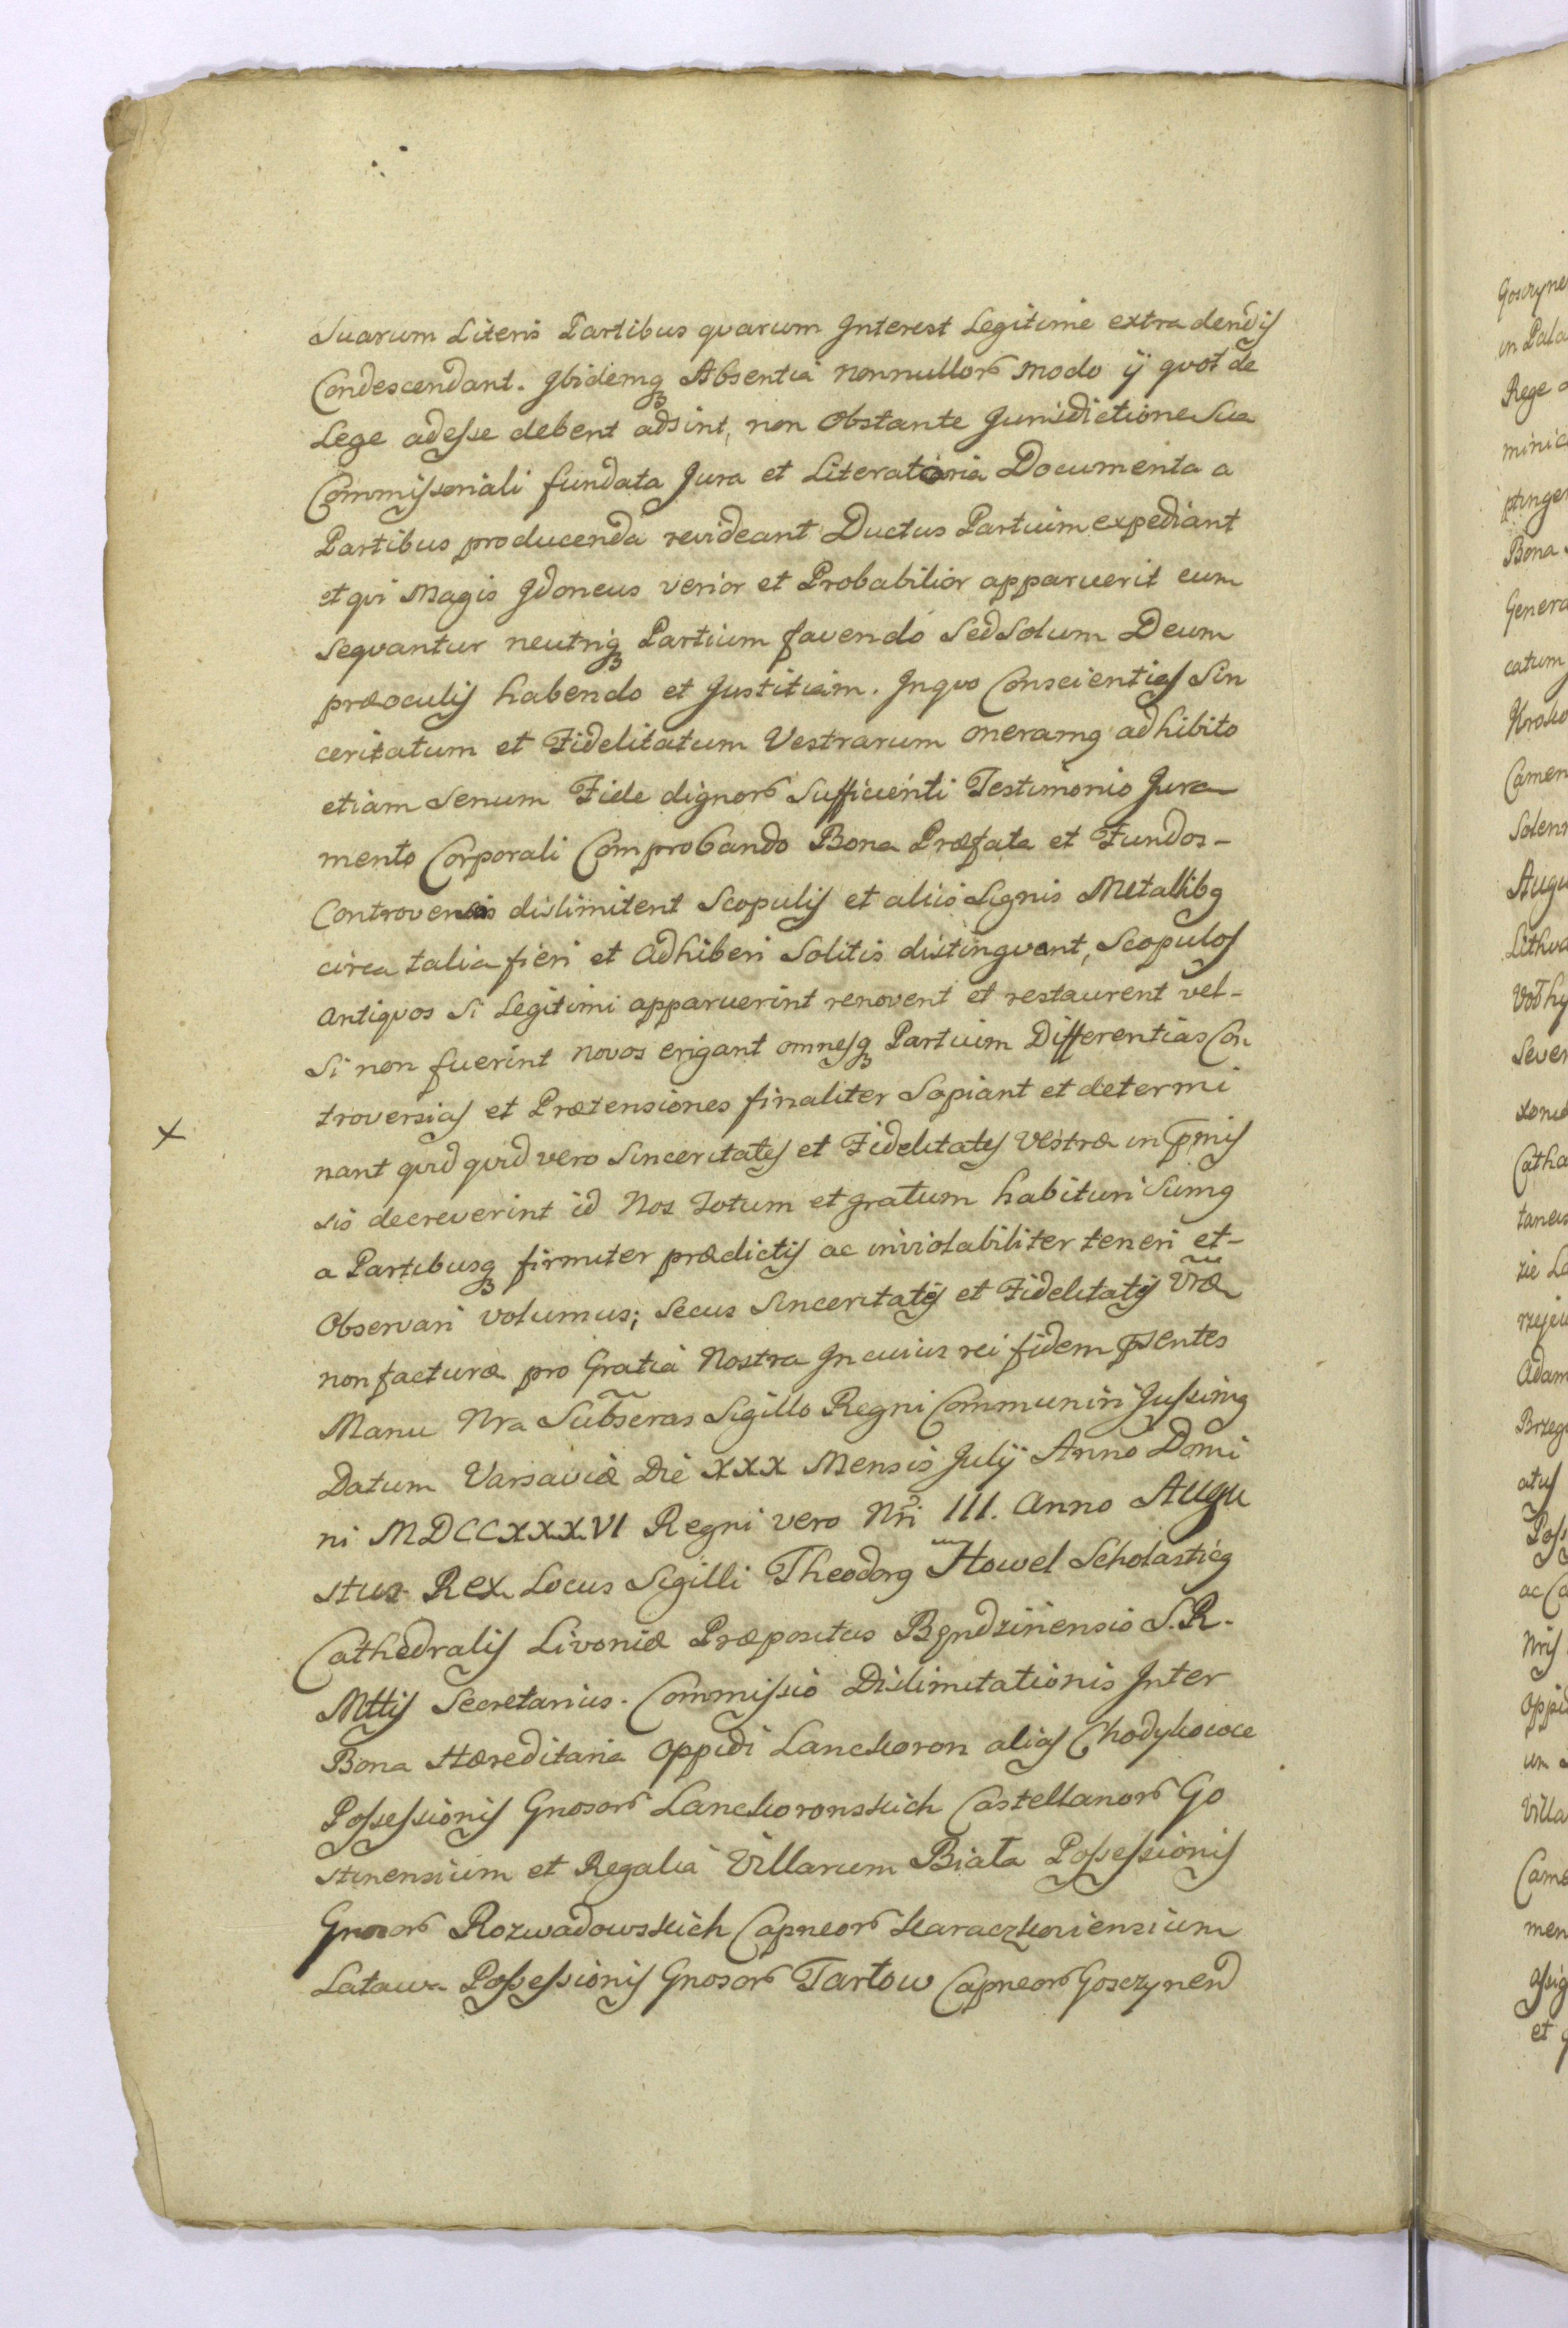 Suarum Literis Partibus quarum Interest Legitime extradendis
Condescendant. Ibidemq3 Absentia nonnullor modo ij quot de
Lege adesse debent adsint, non Obstante Jurisdictione Sua
Commissoriali fundata Jura et Literatoria Documenta a
Partibus producenda revideant Ductus Partium expediant
et qvi Magis Idoneus verior et Probabilior apparuerit eum
seqvantur neutriq3 Partium favendo Sed Solum Deum
præoculis habendo et Justitiam. Inqvo Conscientias Sin
ceritatum et Fidelitatum Vestrarum oneramq adhibito
etiam Senum Fide dignor Sufficienti Testimonio Jura
mento Corporali Comprobando Bona Præfata et Fundos -
Controversos dislimitent Scopulis et aliis Signis Metallibq
circa talia fieri et adhiberi Solitis distingvant, Scopulos
antiqvos Si Legitimi apparuerint renovent et restaurent vel -
Si non fuerint novos erigant omnesq3 Partium Differentias Con
troversias et Prætensiones finaliter Sopiant et determi
nant qvid qvid vero Sinceritates et Fidelitates Vestræ in pmis
sis decreverint id Nos Totum et gratum habituri Sumq
a Partibusq3 firmiter prædictis ac inviolabiliter teneri et -
Observari volumus; Secus Sinceritates et Fidelitates Vræ
non facturæ pro Gratia Nostra In cuius rei fidem psentes
Manu Nra Subscras Sigillo Regni Communiri Jussimq
Datum Varsaviæ Die XXX Mensis Julij Anno Domi
ni MDCCXXXVI Regni vero Nri III. anno Augu
stus Rex Locus Sigilli Theodorq Howel Scholasticq
Cathedralis Livoniæ Præpositus Bendzinensis S. R.
Mttis Secretarius. Commissio Dislimitationis Inter
Bona Hæreditaria Oppidi Lanckoron alias Chodykowce
Possessionis Gnosor Lanckoronskich Castellanor Go
stinensium et Regalia Villarum Biała Possessionis
Gnosor Rozwadowskich Capneor Karaczkoviensium
Latawa Possessionis Gnosor Tarłow Capneor Gosczynen